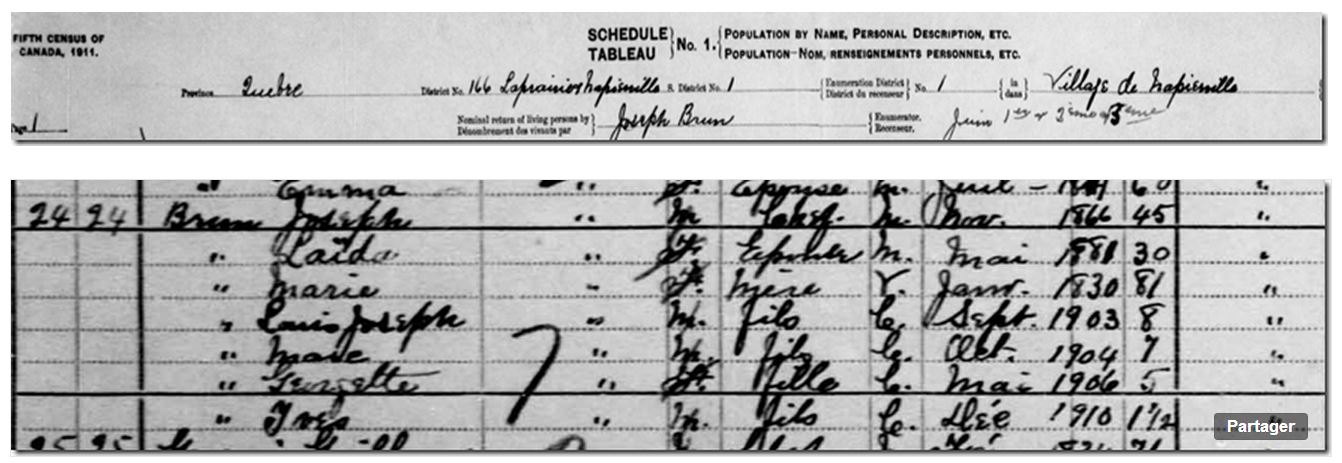 FIFTH CENSUS OF
CANADA, 1911.
SCHEDULE
TABLEAU } No. 1. { POPULATION BY NAME, PERSONAL DESCRIPTION, ETC.
POPULATION-NOM, RENSEIGNEMENTS PERSONNELS, ETC.
Province Quebec District No. 166 Laprairie & Napierville S. District No. 1 { Enumeration District
District du recenseur } No. 1 { in
dans } Village de Napierville
Page 1
Nominal return of living persons by
Dénombrement des vivants par } Joseph Brun { Enumerator.
Recenseur. Juin 1er & 2ème & 3ème
" Emma " F. Epouse M. 60 "
24 24 Brun Joseph " M Chef. M. Nov. 1866 45 "
" Laïda " F. Epouse M. Mai 1881 30 "
" Marie " F. Mère V. Janv. 1830 81 "
" Louis Joseph " M. fils C. Sept. 1903 8 "
" Marc " M. fils C. Oct. 1904 7 "
" Georgette " F. fille C. Mai 1906 5 "
" Yves " M. fils C. Déc 1910 1½
7
25 25
Partager